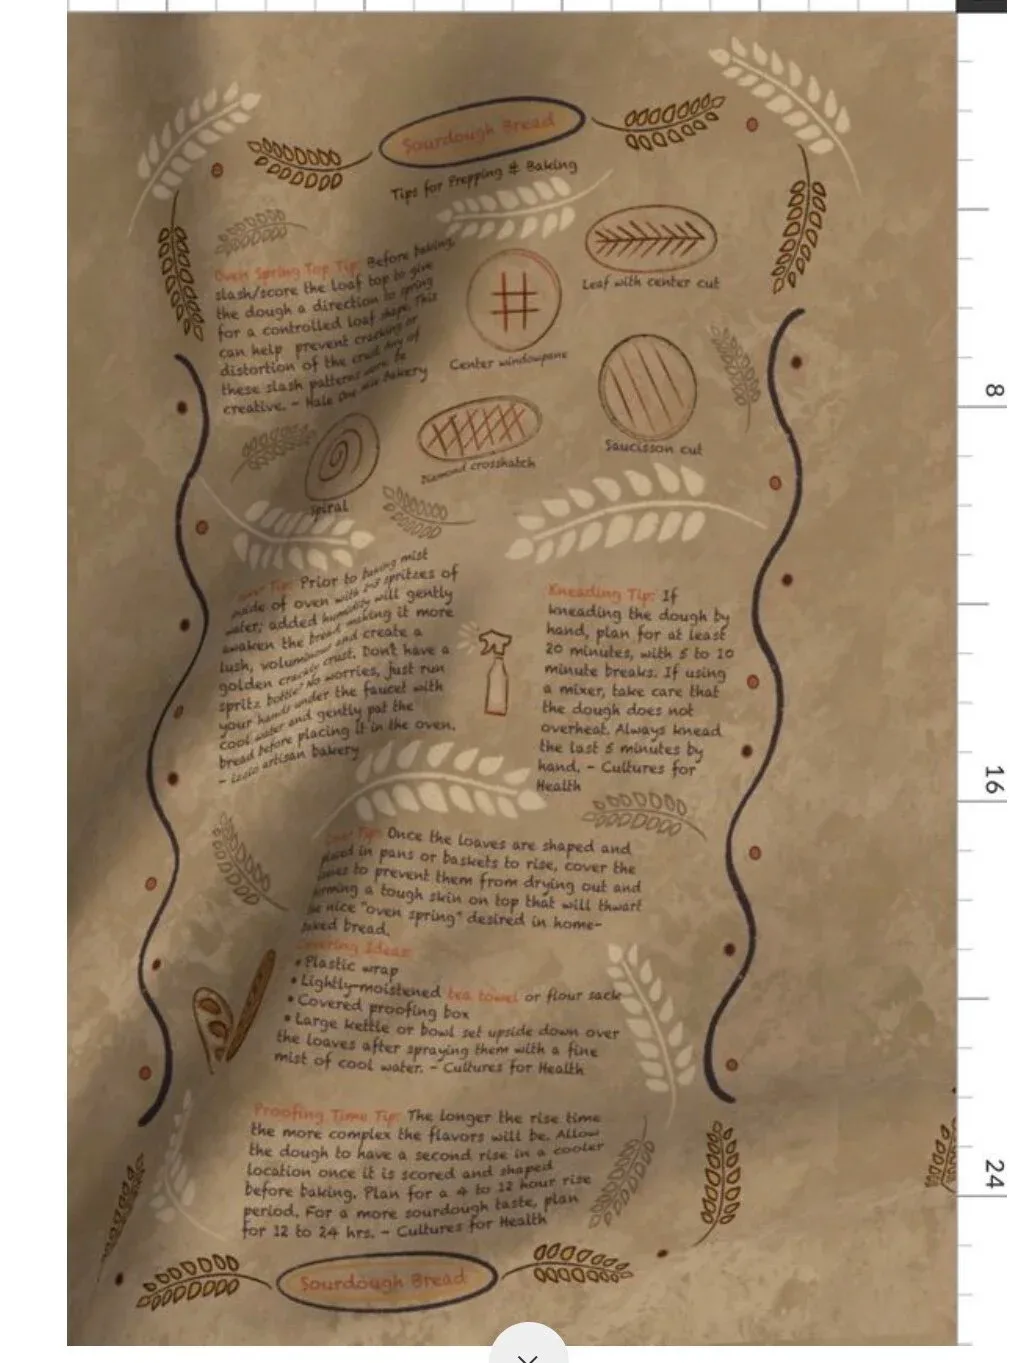 Sourdough Bread
Tips for Prepping & Baking
Oven Spring Top Tip: Before baking,
slash/score the loaf top to give
the dough a direction to spring
for a controlled loaf shape. This
can help prevent cracking or
distortion of the
these slash patterns
creative. - bakery
Leaf with center cut
Center windowpane
Saucisson cut
Diamond crosshatch
Spiral
Tip: Prior to baking mist
inside of oven with 2-3 spritzes of
water; added humidity will gently
awaken the bread making it more
lush, voluminous and create a
golden crackly crust. Don't have a
spritz bottle? No worries, just run
your hands under the faucet with
cool water and gently pat the
bread before placing it in the oven.
- artisan bakery
Kneading Tip: If
kneading the dough by
hand, plan for at least
20 minutes, with 5 to 10
minute breaks. If using
a mixer, take care that
the dough does not
overheat. Always knead
the last 5 minutes by
hand. - Cultures for
Health
Cover Tip: Once the loaves are shaped and
placed in pans or baskets to rise, cover the
loaves to prevent them from drying out and
forming a tough skin on top that will thwart
the nice "oven spring" desired in home-
baked bread.
Covering Ideas:
• Plastic wrap
• Lightly-moistened tea towel or flour sack
• Covered proofing box
• Large kettle or bowl set upside down over
the loaves after spraying them with a fine
mist of cool water. - Cultures for Health
Proofing Time Tip: The longer the rise time
the more complex the flavors will be. Allow
the dough to have a second rise in a cooler
location once it is scored and shaped
before baking. Plan for a 4 to 12 hour rise
period. For a more sourdough taste, plan
for 12 to 24 hrs. - Cultures for Health
Sourdough Bread
8
16
24